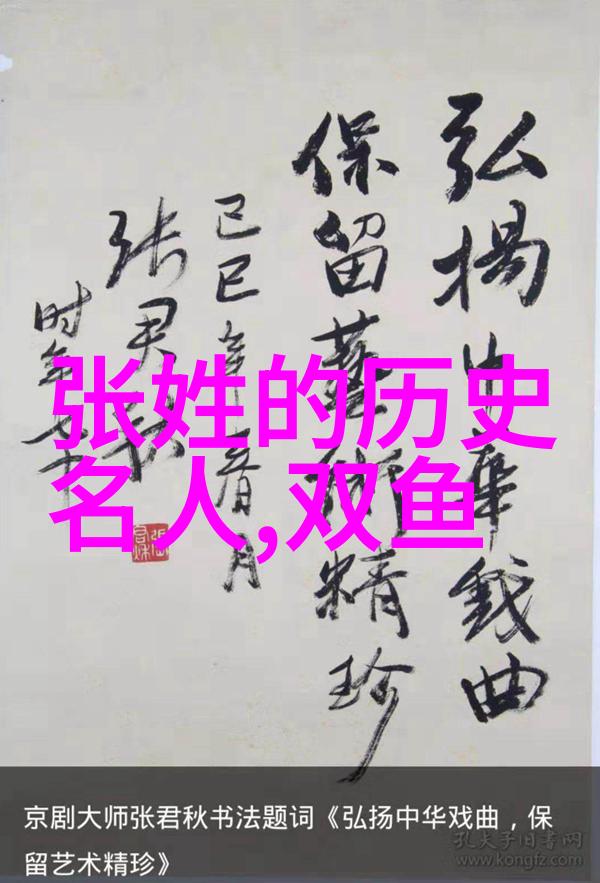 弘揚中華戏曲
保留藝術精珍
己巳年春月
张君秋
时年七十
张姓的历史
名人,双鱼
京剧大师张君秋书法题词《弘扬中华戏曲，保
留艺术精珍》
孔夫子旧书网
www.kongfz.com